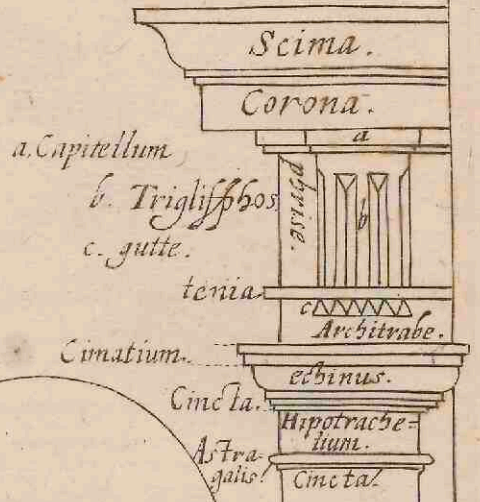 Scima.
Corona.
a
a. Capitellum
phrise.
b. Triglisphos
b
c. gutte.
tenia
c
Architrabe.
Cimatium.
echinus.
Cincta.
Hipotrache=
lium.
Astra-
galis.
Cincta.